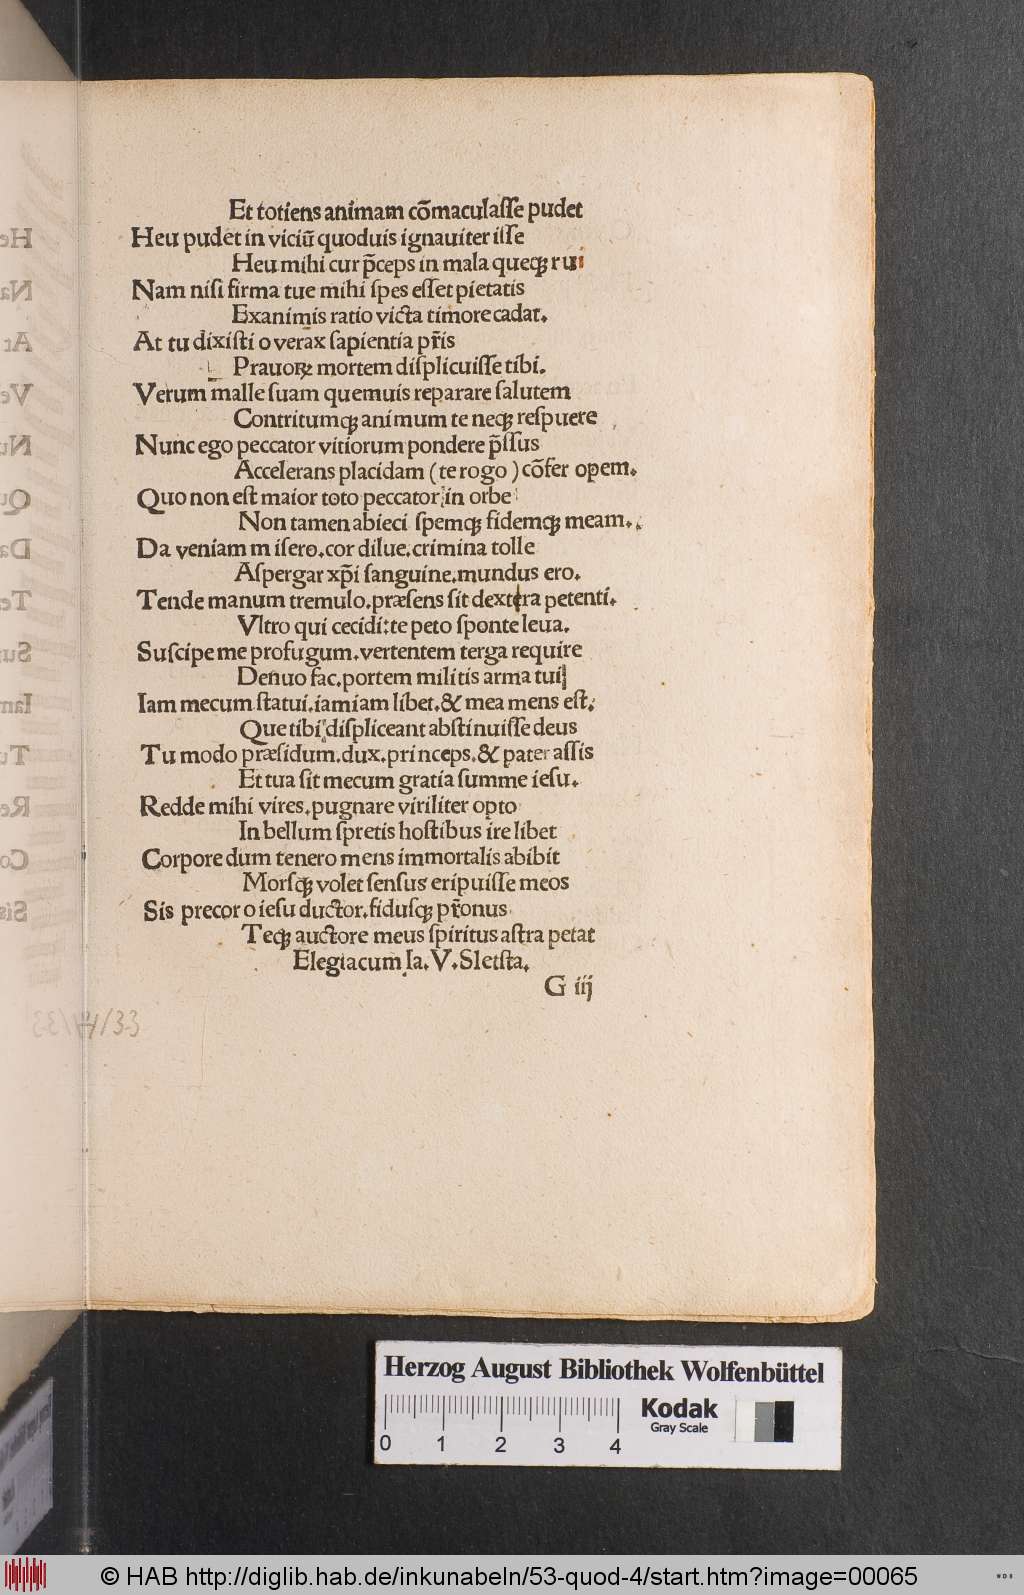 Et totiens animam cōmaculaſſe pudet
Heu pudet in viciū quoduis ignauiter iſſe
Heu mihi cur p̄ceps in mala queqꝫ rui
Nam niſi firma tue mihi ſpes eſſet pietatis
Exanimis ratio victa timore cadat.
At tu dixiſti o verax ſapientia pr̄is
Prauoꝝ mortem diſplicuiſſe tibi.
Verum malle ſuam quemuis reparare ſalutem
Contritumqꝫ animum te neqꝫ reſpuere
Nunc ego peccator vitiorum pondere p̄ſſus
Accelerans placidam (te rogo) cōfer opem.
Quo non eſt maior toto peccator in orbe
Non tamen abieci ſpemqꝫ fidemqꝫ meam.
Da veniam miſero.cor dilue.crimina tolle
Aſpergar xp̄i ſanguine.mundus ero.
Tende manum tremulo.præſens ſit dextera petenti.
Vltro qui cecidi:te peto ſponte leua.
Suſcipe me profugum.vertentem terga require
Denuo fac.portem militis arma tui
Iam mecum ſtatui.iamiam libet.& mea mens eſt.
Que tibi diſpliceant abſtinuiſſe deus
Tu modo præſidum.dux.princeps.& pater aſſis
Et tua ſit mecum gratia ſumme ieſu.
Redde mihi vires.pugnare viriliter opto
In bellum ſpretis hoſtibus ire libet
Corpore dum tenero mens immortalis abibit
Morſqꝫ volet ſenſus eripuiſſe meos
Sis precor o ieſu ductor.fiduſqꝫ pr̄onus
Teqꝫ auctore meus ſpiritus aſtra petat
Elegiacum Ia.V.Sletſta.
G iij
Herzog August Bibliothek Wolfenbüttel
0 1 2 3 4
Kodak
Gray Scale
© HAB http://diglib.hab.de/inkunabeln/53-quod-4/start.htm?image=00065